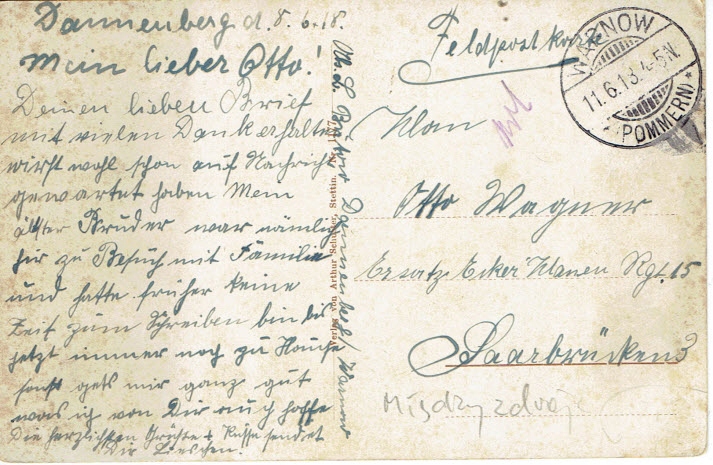 Dannenberg d. 8.6.18.
Mein lieber Otto!
Deinen lieben Brief
mit vielen Dank erhalten
wirst wohl schon auf Nachricht
gewartet haben Mein
älster Bruder war nämlich
hir zu Besuch mit Familie
und hatte früher keine
Zeit zum Schreiben bin bis
jetzt immer noch zu Hause
sonst gets mir ganz gut
was ich von Dir auch hoffe
Die herzlichsten Grüchte + Küsse sendet
Dir Lieschen.
Dannenberg / Warnow
Verlag von Arthur Schuster, Stettin.
Feldpostkarte
WARNOW
11.6.18.4-5N.
(POMMERN)
Ulan
Otto Wagner
Ersatz Eskr Ulanen Rgt. 15
Saarbrücken 3
Międzyzdroje